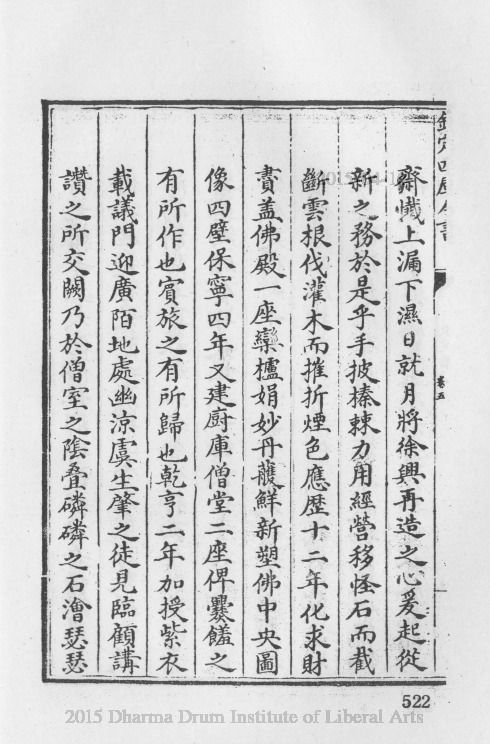 欽定四庫全書
卷五
齋懺上漏下濕日就月將徐興再造之心爰起從
新之務於是乎手披榛棘力用經營移怪石而截
斷雲根伐灌木而摧折煙色應歴十二年化求財
賣盖佛殿一座欒櫨娟妙丹雘鮮新塑佛中央圖
像四壁保寧四年又建厨庫僧堂二座俾爨饈之
有所作也賓旅之有所歸也乾亨二年加授紫衣
載議門迎廣陌地處幽涼虞生肇之徒見臨顧講
讃之所交闕乃於僧室之隂叠磷磷之石澮瑟瑟
522
2015 Dharma Drum Institute of Liberal Arts